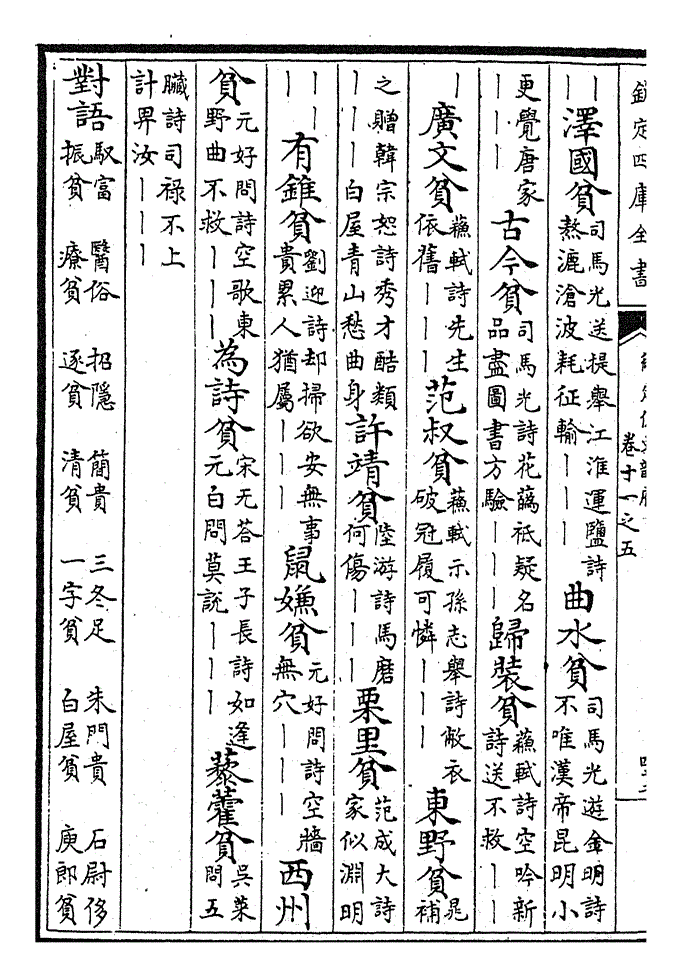 欽定四庫全書 卷十一之五
｜｜澤國貧司馬光送提舉江淮運鹽詩熬漉滄波耗征輸｜｜｜曲水貧司馬光遊金明詩不唯漢帝昆明小
更覺唐家｜｜｜古今貧司馬光詩花蘤祇疑名品盡圖書方驗｜｜｜歸裝貧蘇軾詩空吟新詩送不救｜｜
｜廣文貧蘇軾詩先生依舊｜｜｜范叔貧蘇軾示孫志舉詩敝衣破冠履可憐｜｜｜東野貧晁補
之贈韓宗恕詩秀才酷類｜｜｜白屋青山愁曲身許靖貧陸游詩馬磨何傷｜｜｜栗里貧范成大詩家似淵明
｜｜｜有錐貧劉迎詩却掃欲安無事貴累人猶屬｜｜｜鼠嫌貧元好問詩空牆無穴｜｜｜西州
貧元好問詩空歌東野曲不救｜｜｜為詩貧宋无荅王子長詩如逢元白問莫說｜｜｜藜藿貧吳萊問五
臟詩司祿不上計畀汝｜｜｜
對語馭富 醫俗 招隱 簡貴 三冬足 朱門貴 石尉侈
振貧 療貧 逐貧 清貧 一字貧 白屋貧 庾郎貧